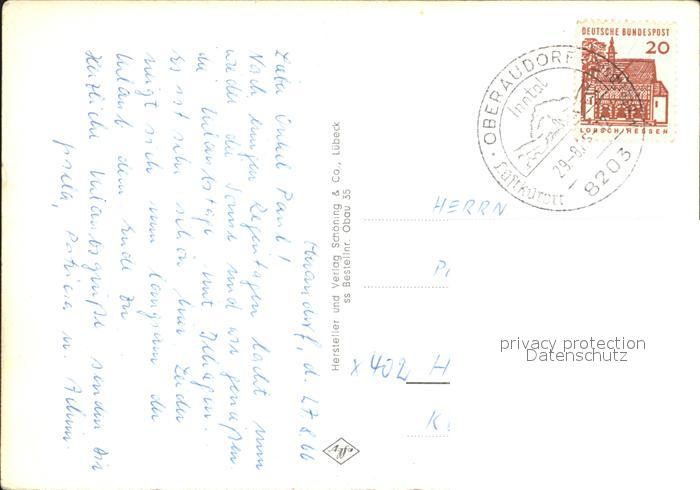 Audorf, d. 27.8.66
Lieber Onkel Paul!
Nach einigen Regentagen lacht nun
wieder die Sonne und wir genießen
die Urlaubstage mit Behagen.
Es ist sehr schön hier. Leider
neigt sich nun langsam der
Urlaub dem Ende zu.
Herzliche Urlaubsgrüße senden Dir
Patricia u. Achim
Hersteller und Verlag Schöning & Co., Lübeck
ss Bestellnr. Obau 35
DEUTSCHE BUNDESPOST
20
LORSCH/HESSEN
OBERAUDORF
Inntal
Luftkurort
29.-8.
8203
HERRN
P
x 402 H
K
privacy protection
Datenschutz